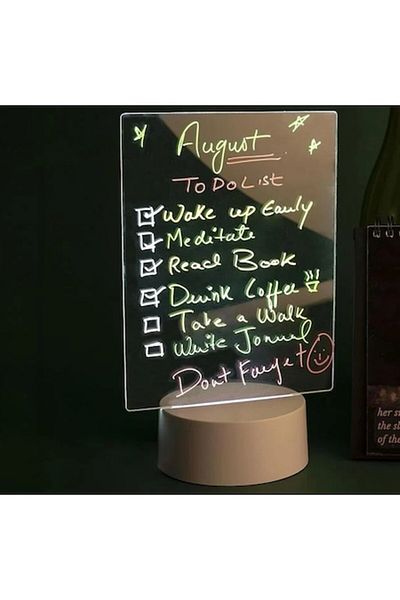 August
To Do List
Wake up Early
Meditate
Read Book
Drink Coffee
Take a Walk
Write Journal
Dont Forget
her s
the sl
of the